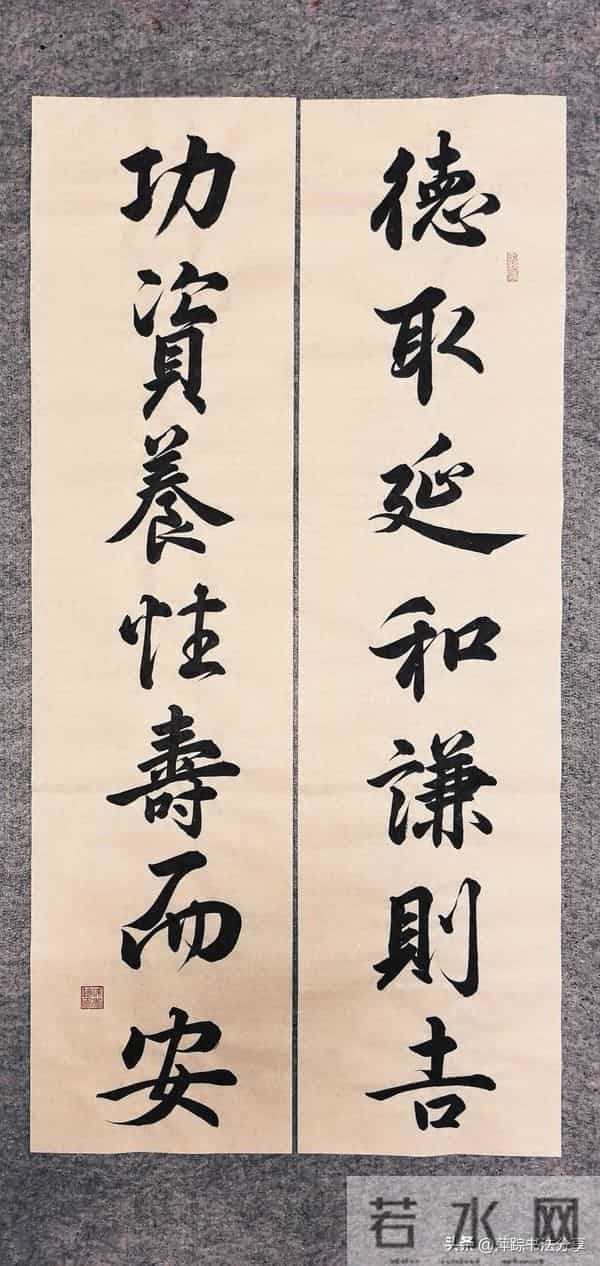 德取延和謙則吉
功資養性壽而安
若水网
头条@萍踪书法分享